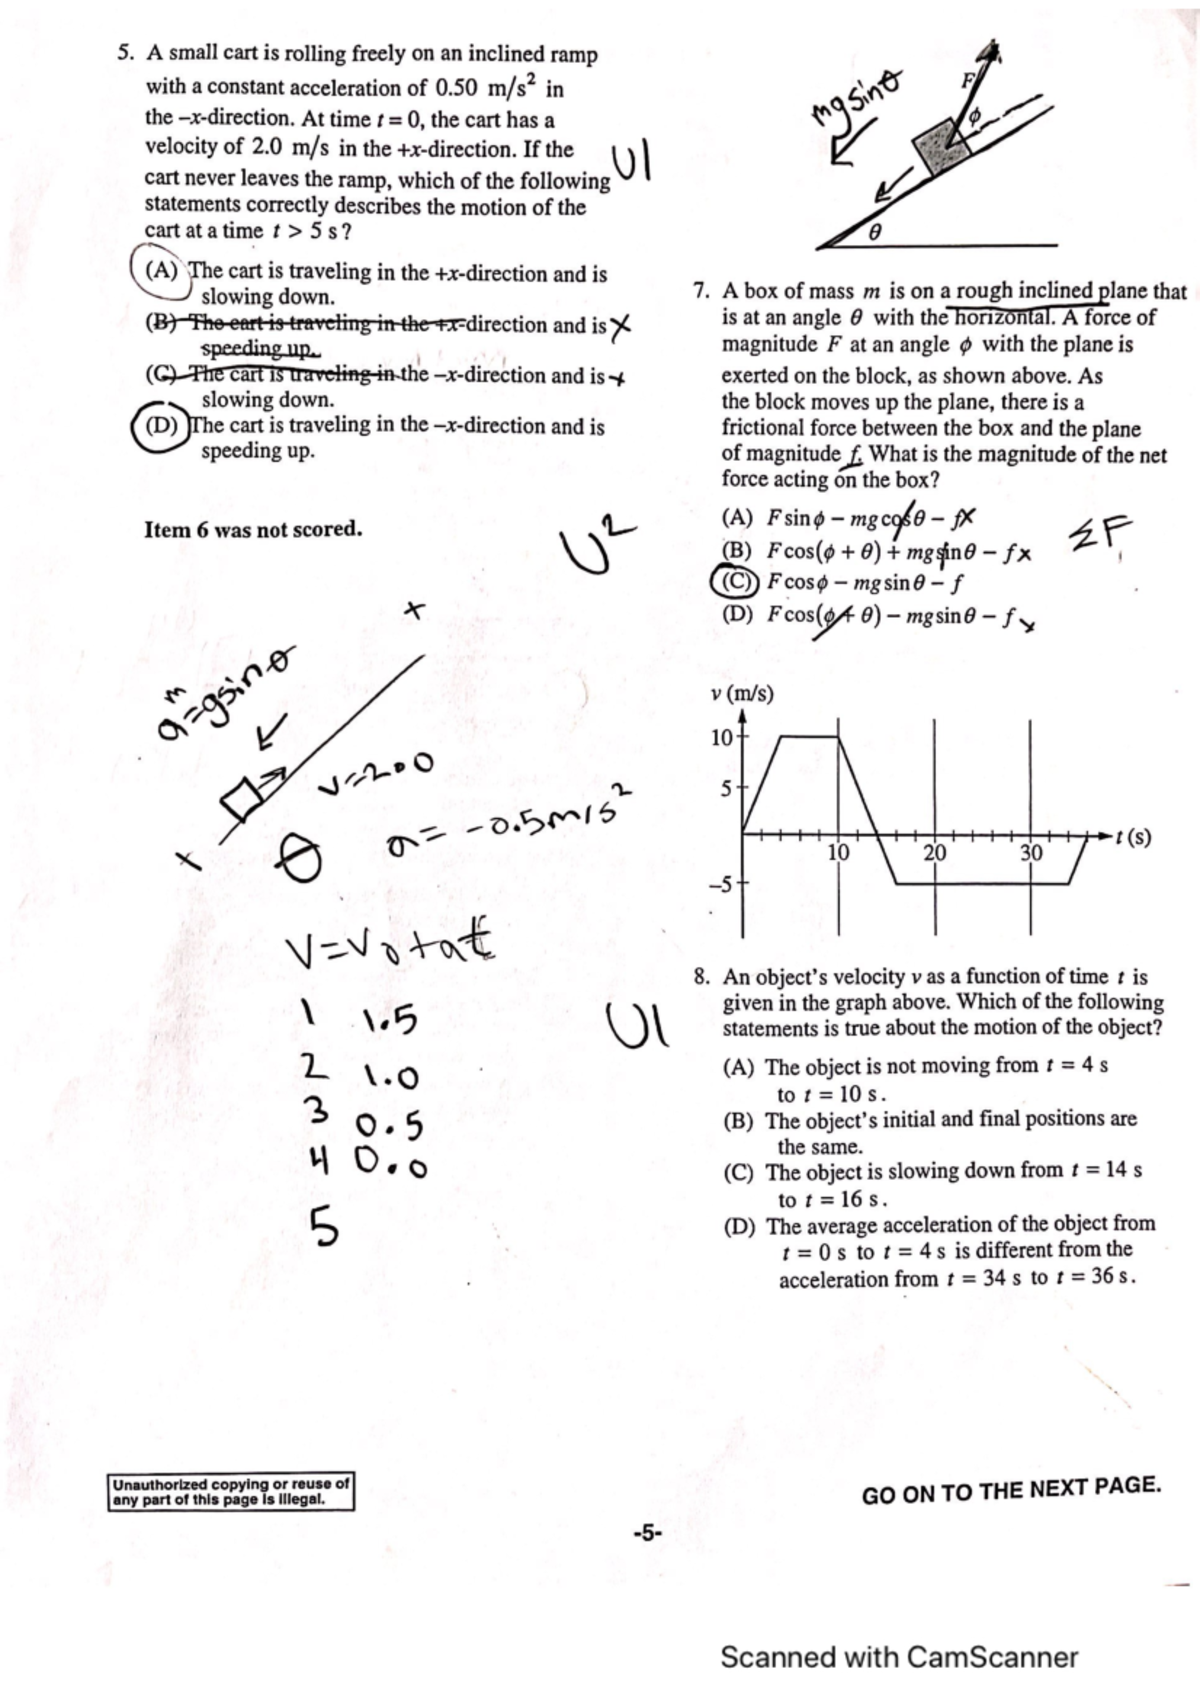 5. A small cart is rolling freely on an inclined ramp
with a constant acceleration of 0.50 m/s² in
the –x-direction. At time t = 0, the cart has a
velocity of 2.0 m/s in the +x-direction. If the
cart never leaves the ramp, which of the following
statements correctly describes the motion of the
cart at a time t > 5 s?
U1
(A) The cart is traveling in the +x-direction and is
slowing down.
(B) The cart is traveling in the +x-direction and is X
speeding up.
(C) The cart is traveling in the –x-direction and is x
slowing down.
(D) The cart is traveling in the –x-direction and is
speeding up.
Item 6 was not scored.
U2
x
a=gsinθ
m
v=2.0
a= -0.5m/s²
x
θ
V=V₀+at
1 1.5
2 1.0
3 0.5
4 0.0
5
mgsinθ
F
ϕ
θ
7. A box of mass m is on a rough inclined plane that
is at an angle θ with the horizontal. A force of
magnitude F at an angle ϕ with the plane is
exerted on the block, as shown above. As
the block moves up the plane, there is a
frictional force between the box and the plane
of magnitude f. What is the magnitude of the net
force acting on the box?
(A) F sin ϕ – mg cos θ – f X
(B) F cos(ϕ + θ) + mg sin θ – f x
(C) F cos ϕ – mg sin θ – f
(D) F cos(ϕ + θ) – mg sin θ – f x
ΣF
v (m/s)
10
5
–5
10 20 30
t (s)
U1
8. An object's velocity v as a function of time t is
given in the graph above. Which of the following
statements is true about the motion of the object?
(A) The object is not moving from t = 4 s
to t = 10 s.
(B) The object's initial and final positions are
the same.
(C) The object is slowing down from t = 14 s
to t = 16 s.
(D) The average acceleration of the object from
t = 0 s to t = 4 s is different from the
acceleration from t = 34 s to t = 36 s.
Unauthorized copying or reuse of
any part of this page is illegal.
GO ON TO THE NEXT PAGE.
-5-
Scanned with CamScanner